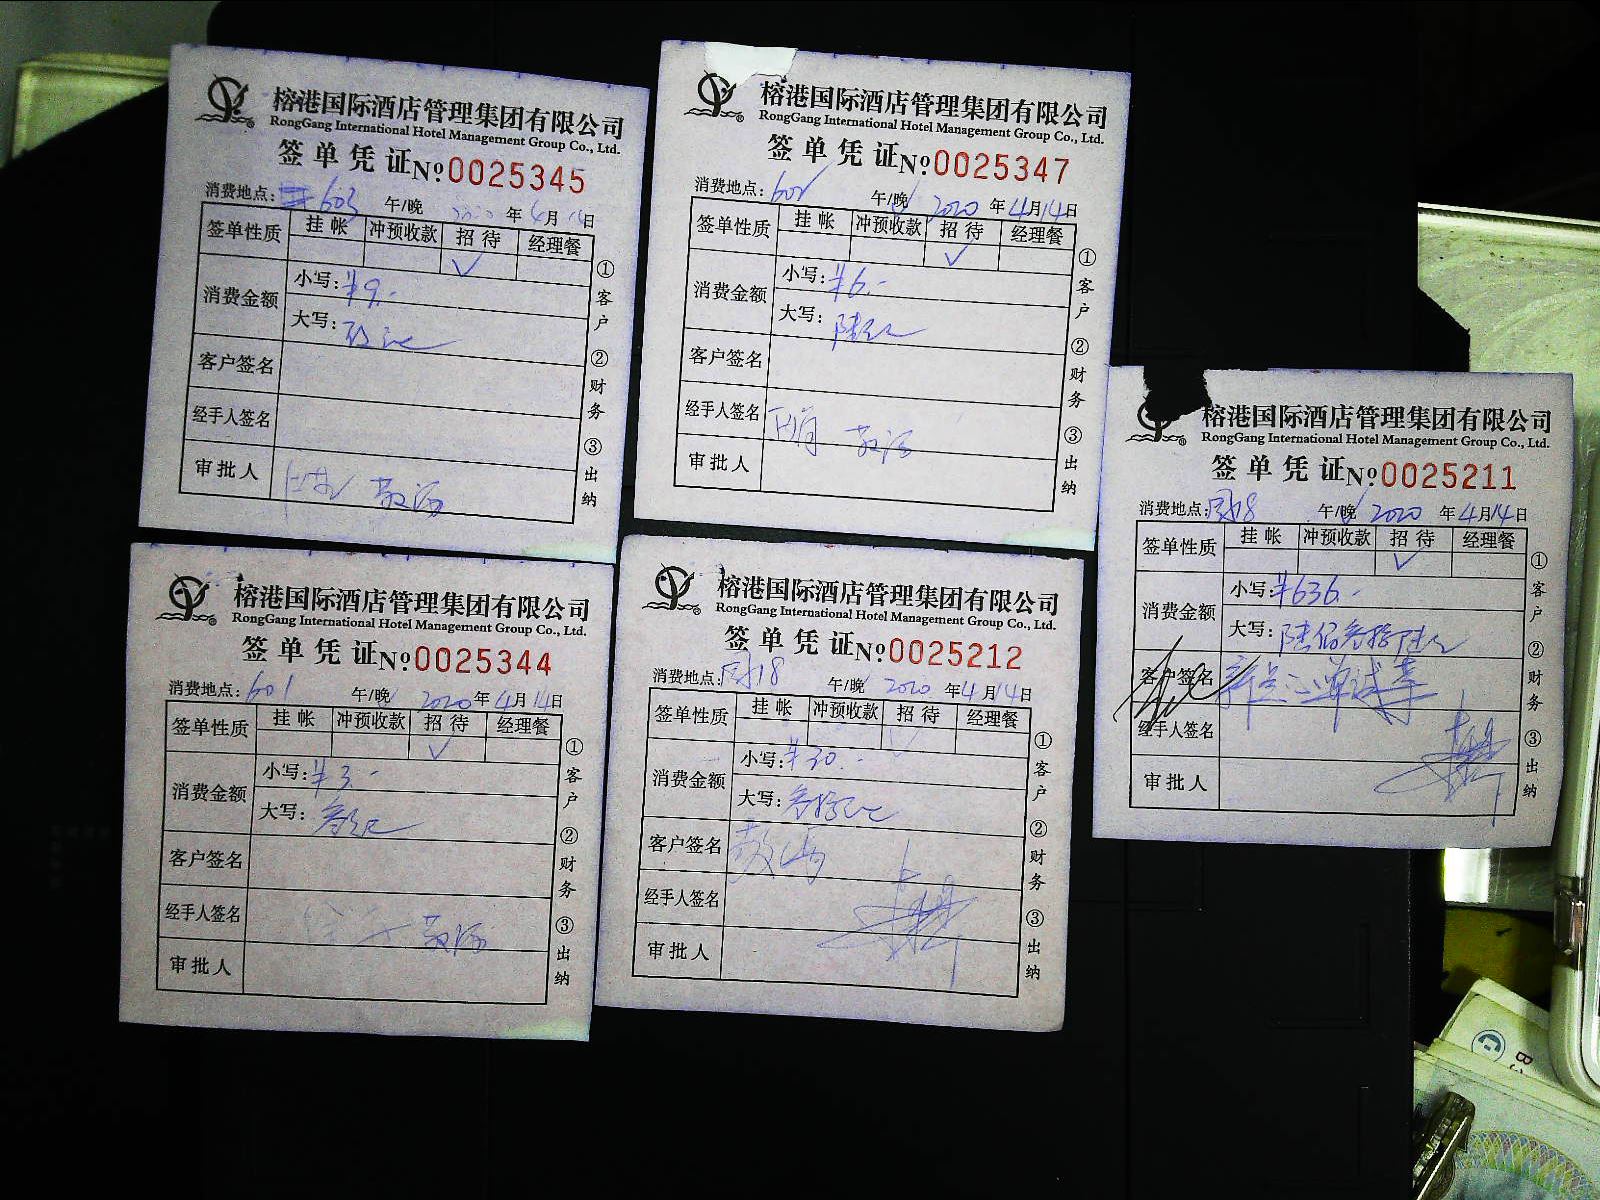 榕港国际酒店管理集团有限公司
RongGang International Hotel Management Group Co., Ltd.
签单凭证 No 0025345
消费地点: 603 午/晚 2020年4月14日
签单性质 挂帐 冲预收款 招待 经理餐
✓
消费金额 小写: ¥9.-
大写: 玖元
客户签名
经手人签名
审批人
①客户 ②财务 ③出纳
榕港国际酒店管理集团有限公司
RongGang International Hotel Management Group Co., Ltd.
签单凭证 No 0025347
消费地点: 602 午/晚 2020年4月14日
签单性质 挂帐 冲预收款 招待 经理餐
✓
消费金额 小写: ¥6.-
大写: 陆元
客户签名
经手人签名
审批人
①客户 ②财务 ③出纳
榕港国际酒店管理集团有限公司
RongGang International Hotel Management Group Co., Ltd.
签单凭证 No 0025211
消费地点: 18 午/晚 2020年4月14日
签单性质 挂帐 冲预收款 招待 经理餐
✓
消费金额 小写: ¥636.-
大写: 陆佰叁拾陆元
客户签名
经手人签名
审批人
①客户 ②财务 ③出纳
榕港国际酒店管理集团有限公司
RongGang International Hotel Management Group Co., Ltd.
签单凭证 No 0025344
消费地点: 601 午/晚 2020年4月14日
签单性质 挂帐 冲预收款 招待 经理餐
✓
消费金额 小写: ¥3.-
大写: 叁元
客户签名
经手人签名
审批人
①客户 ②财务 ③出纳
榕港国际酒店管理集团有限公司
RongGang International Hotel Management Group Co., Ltd.
签单凭证 No 0025212
消费地点: 18 午/晚 2020年4月14日
签单性质 挂帐 冲预收款 招待 经理餐
✓
消费金额 小写: ¥30.-
大写: 叁拾元
客户签名
经手人签名
审批人
①客户 ②财务 ③出纳